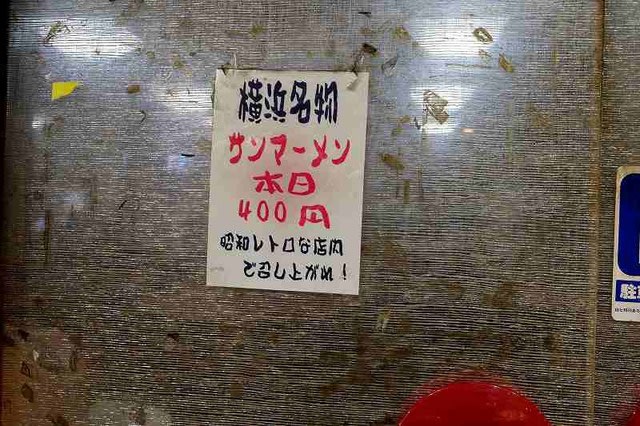 横浜名物
サンマーメン
本日
400円
昭和レトロな店内
で召し上がれ!
駐